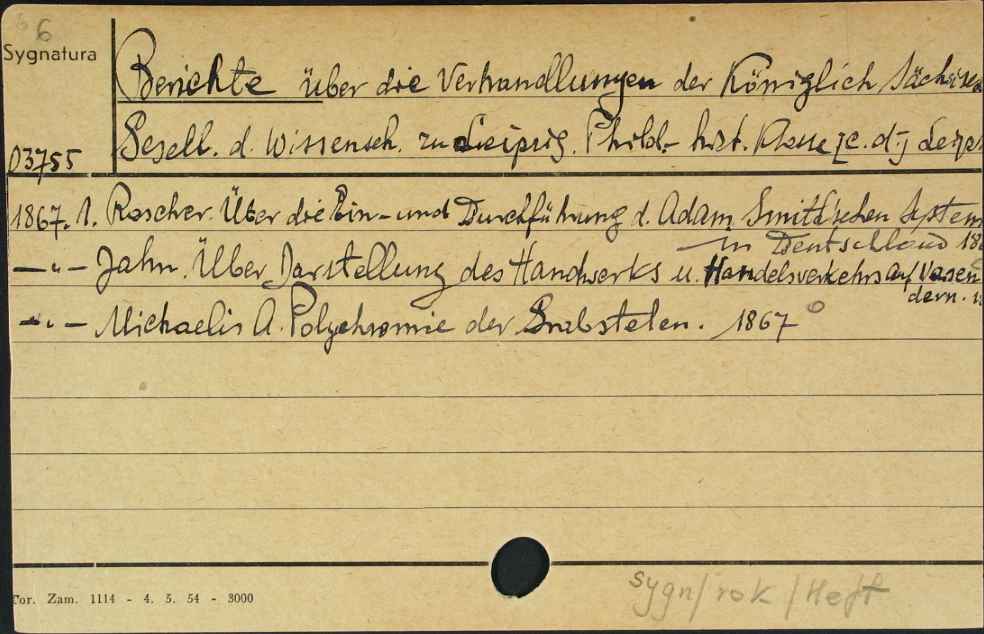 6
Sygnatura
Berichte über die Verhandlungen der Königlich Sächsisch
Gesell. d. Wissensch. zu Leipzig. Philol.- hist. Klasse [c. d.j
03755
1867. 1. Roscher. Über die Ein- und Durchführung d. Adam Smith'schen System
in Deutschland 18
— " — Jahn. Über Darstellung des Handwerks u. Handelsverkehrs auf Vasen
dern.
— " — Michaelis A. Polychromie der Grabstelen. 1867
Tor. Zam. 1114 - 4. 5. 54 - 3000
sygn/ rok / Heft